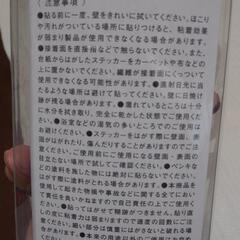 〈注意事項〉
●貼る前に一度、壁をきれいに拭いてください。ほこり
や汚れがついている場所に貼りつけると、粘着効果
が弱まり製品が使用できなくなる場合があります。
●接着面を直接指などで触らないでください。また、
台紙からはがしたステッカーをカーペットや布などの
上に置かないでください。繊維が接着面にくっついて
使用できなくなる場合があります。●直射日光に当
たるような場所は避けて貼ってください。壁に日焼け
が残る場合があります。●濡れているところは十分
に水分を拭き取り、完全に乾かした状態でご使用くだ
さい。●浴室などの湿気の多いところでのご使用は
お避けください。●ステッカーをはがす際に、壁面、
表面がはがれたり、傷んだりすることがあります。
ご使用前に使用になる壁面・表面の
目立たない場所で試してからご使用ください。●ペンキな
どの塗料を施した物には絶対に貼らないでください。
はがす際に塗料がとれる場合があります。●本商品を
使用して起きた物損や事故などに関する全てにおい
て責任を負いかねますので自己責任の上でご使用く
ださい。●貼ってはがせて糊跡がつきません。貼り直
しの度に粘着力は弱まりますので過度の回数にご注
意ください。細い部分は慎重にはがさないと破れる
場合があります。●本来の用途以外のご使用はご